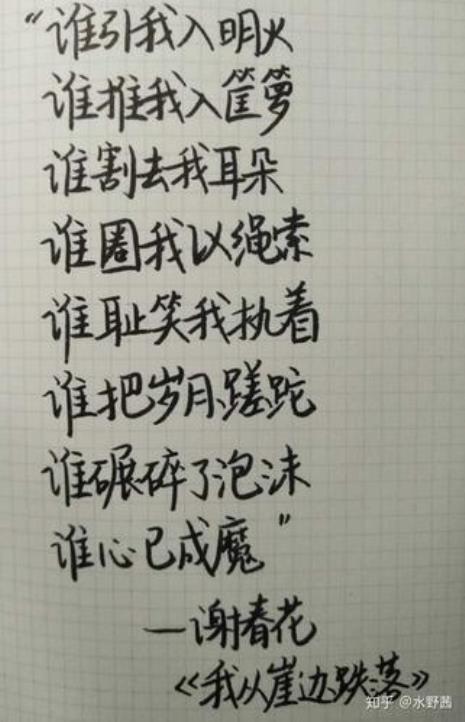 “谁引我入明火
谁推我入筐箩
谁割去我耳朵
谁圈我以绳索
谁耻笑我执着
谁把岁月蹉跎
谁碾碎了泡沫
谁心已成魔”
—谢春花
《我从崖边跌落》
知乎 @水野茜